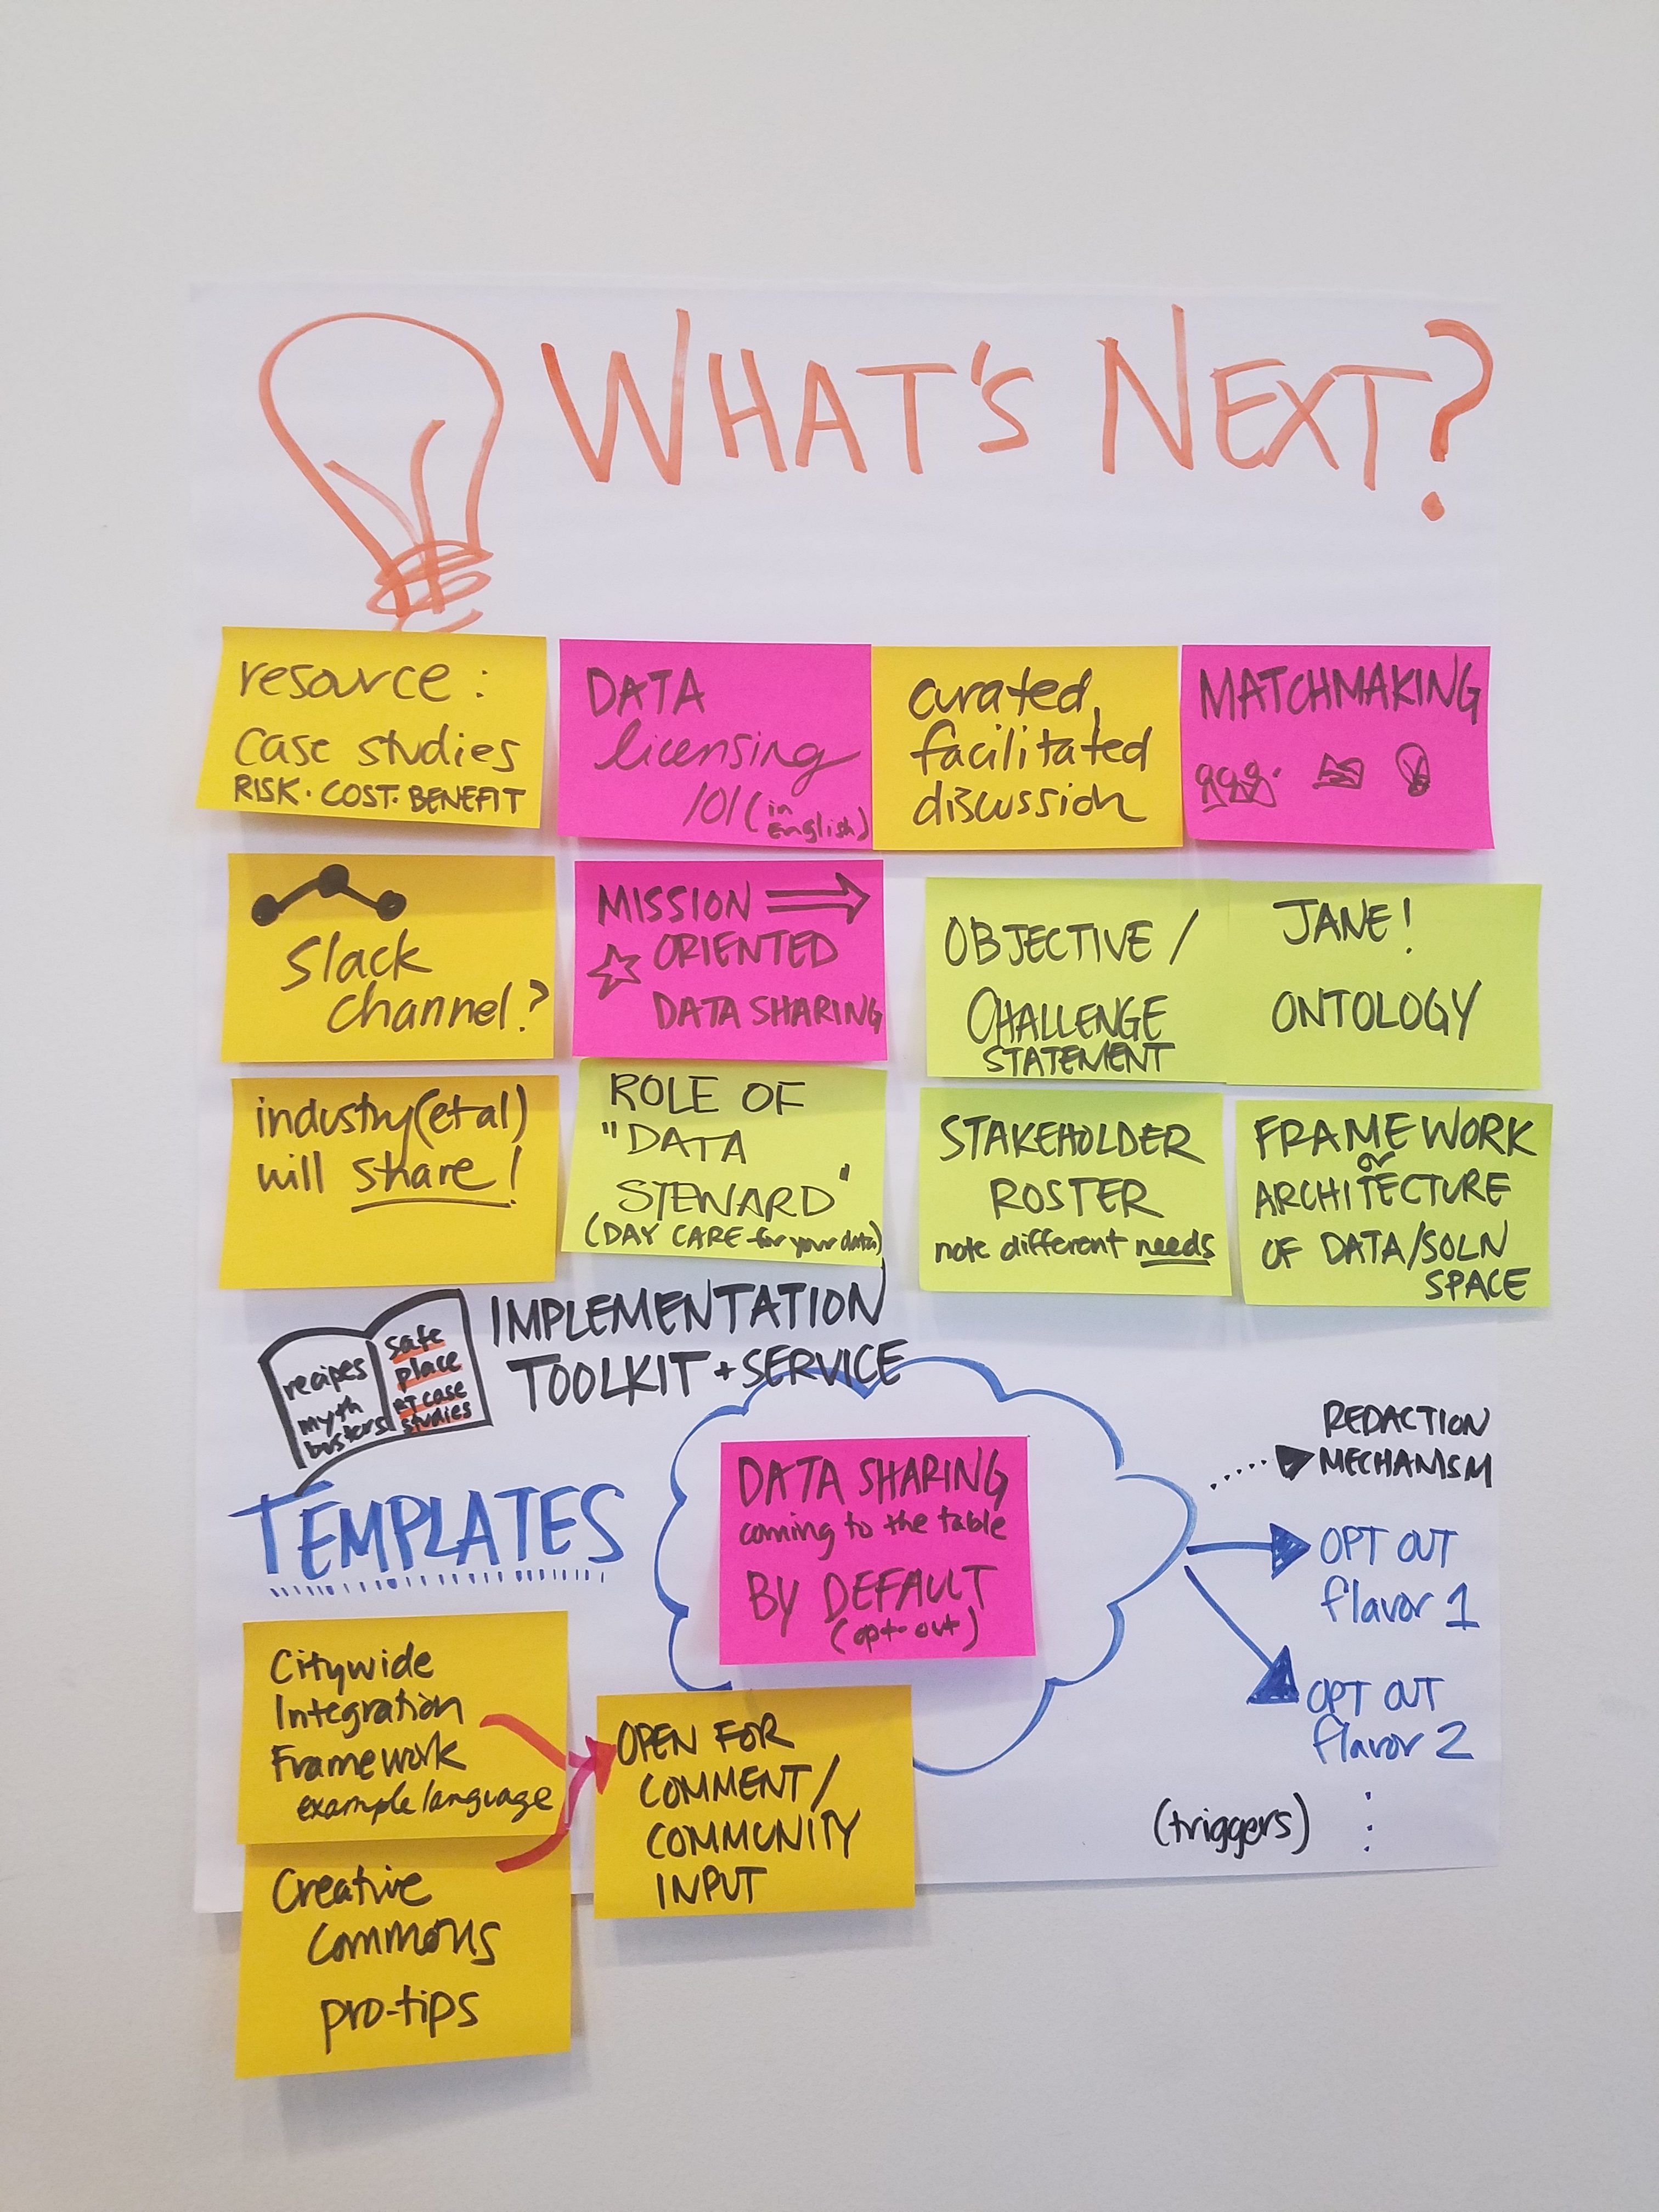 WHAT'S NEXT?
resource:
case studies
RISK. COST. BENEFIT
DATA
licensing
101 (in
English)
curated,
facilitated
discussion
MATCHMAKING
Slack
channel?
MISSION
ORIENTED
DATA SHARING
OBJECTIVE /
CHALLENGE
STATEMENT
JANE!
ONTOLOGY
industry (et al)
will share!
ROLE OF
"DATA
STEWARD"
(DAY CARE for your data)
STAKEHOLDER
ROSTER
note different needs
FRAMEWORK
or
ARCHITECTURE
OF DATA/SOLN
SPACE
recipes
myth
busters
safe
place
case
studies
IMPLEMENTATION
TOOLKIT + SERVICE
TEMPLATES
DATA SHARING
coming to the table
BY DEFAULT
(opt-out)
REDACTION
MECHANISM
OPT OUT
flavor 1
OPT OUT
flavor 2
(triggers)
Citywide
Integration
Framework
example language
OPEN FOR
COMMENT/
COMMUNITY
INPUT
Creative
Commons
pro-tips